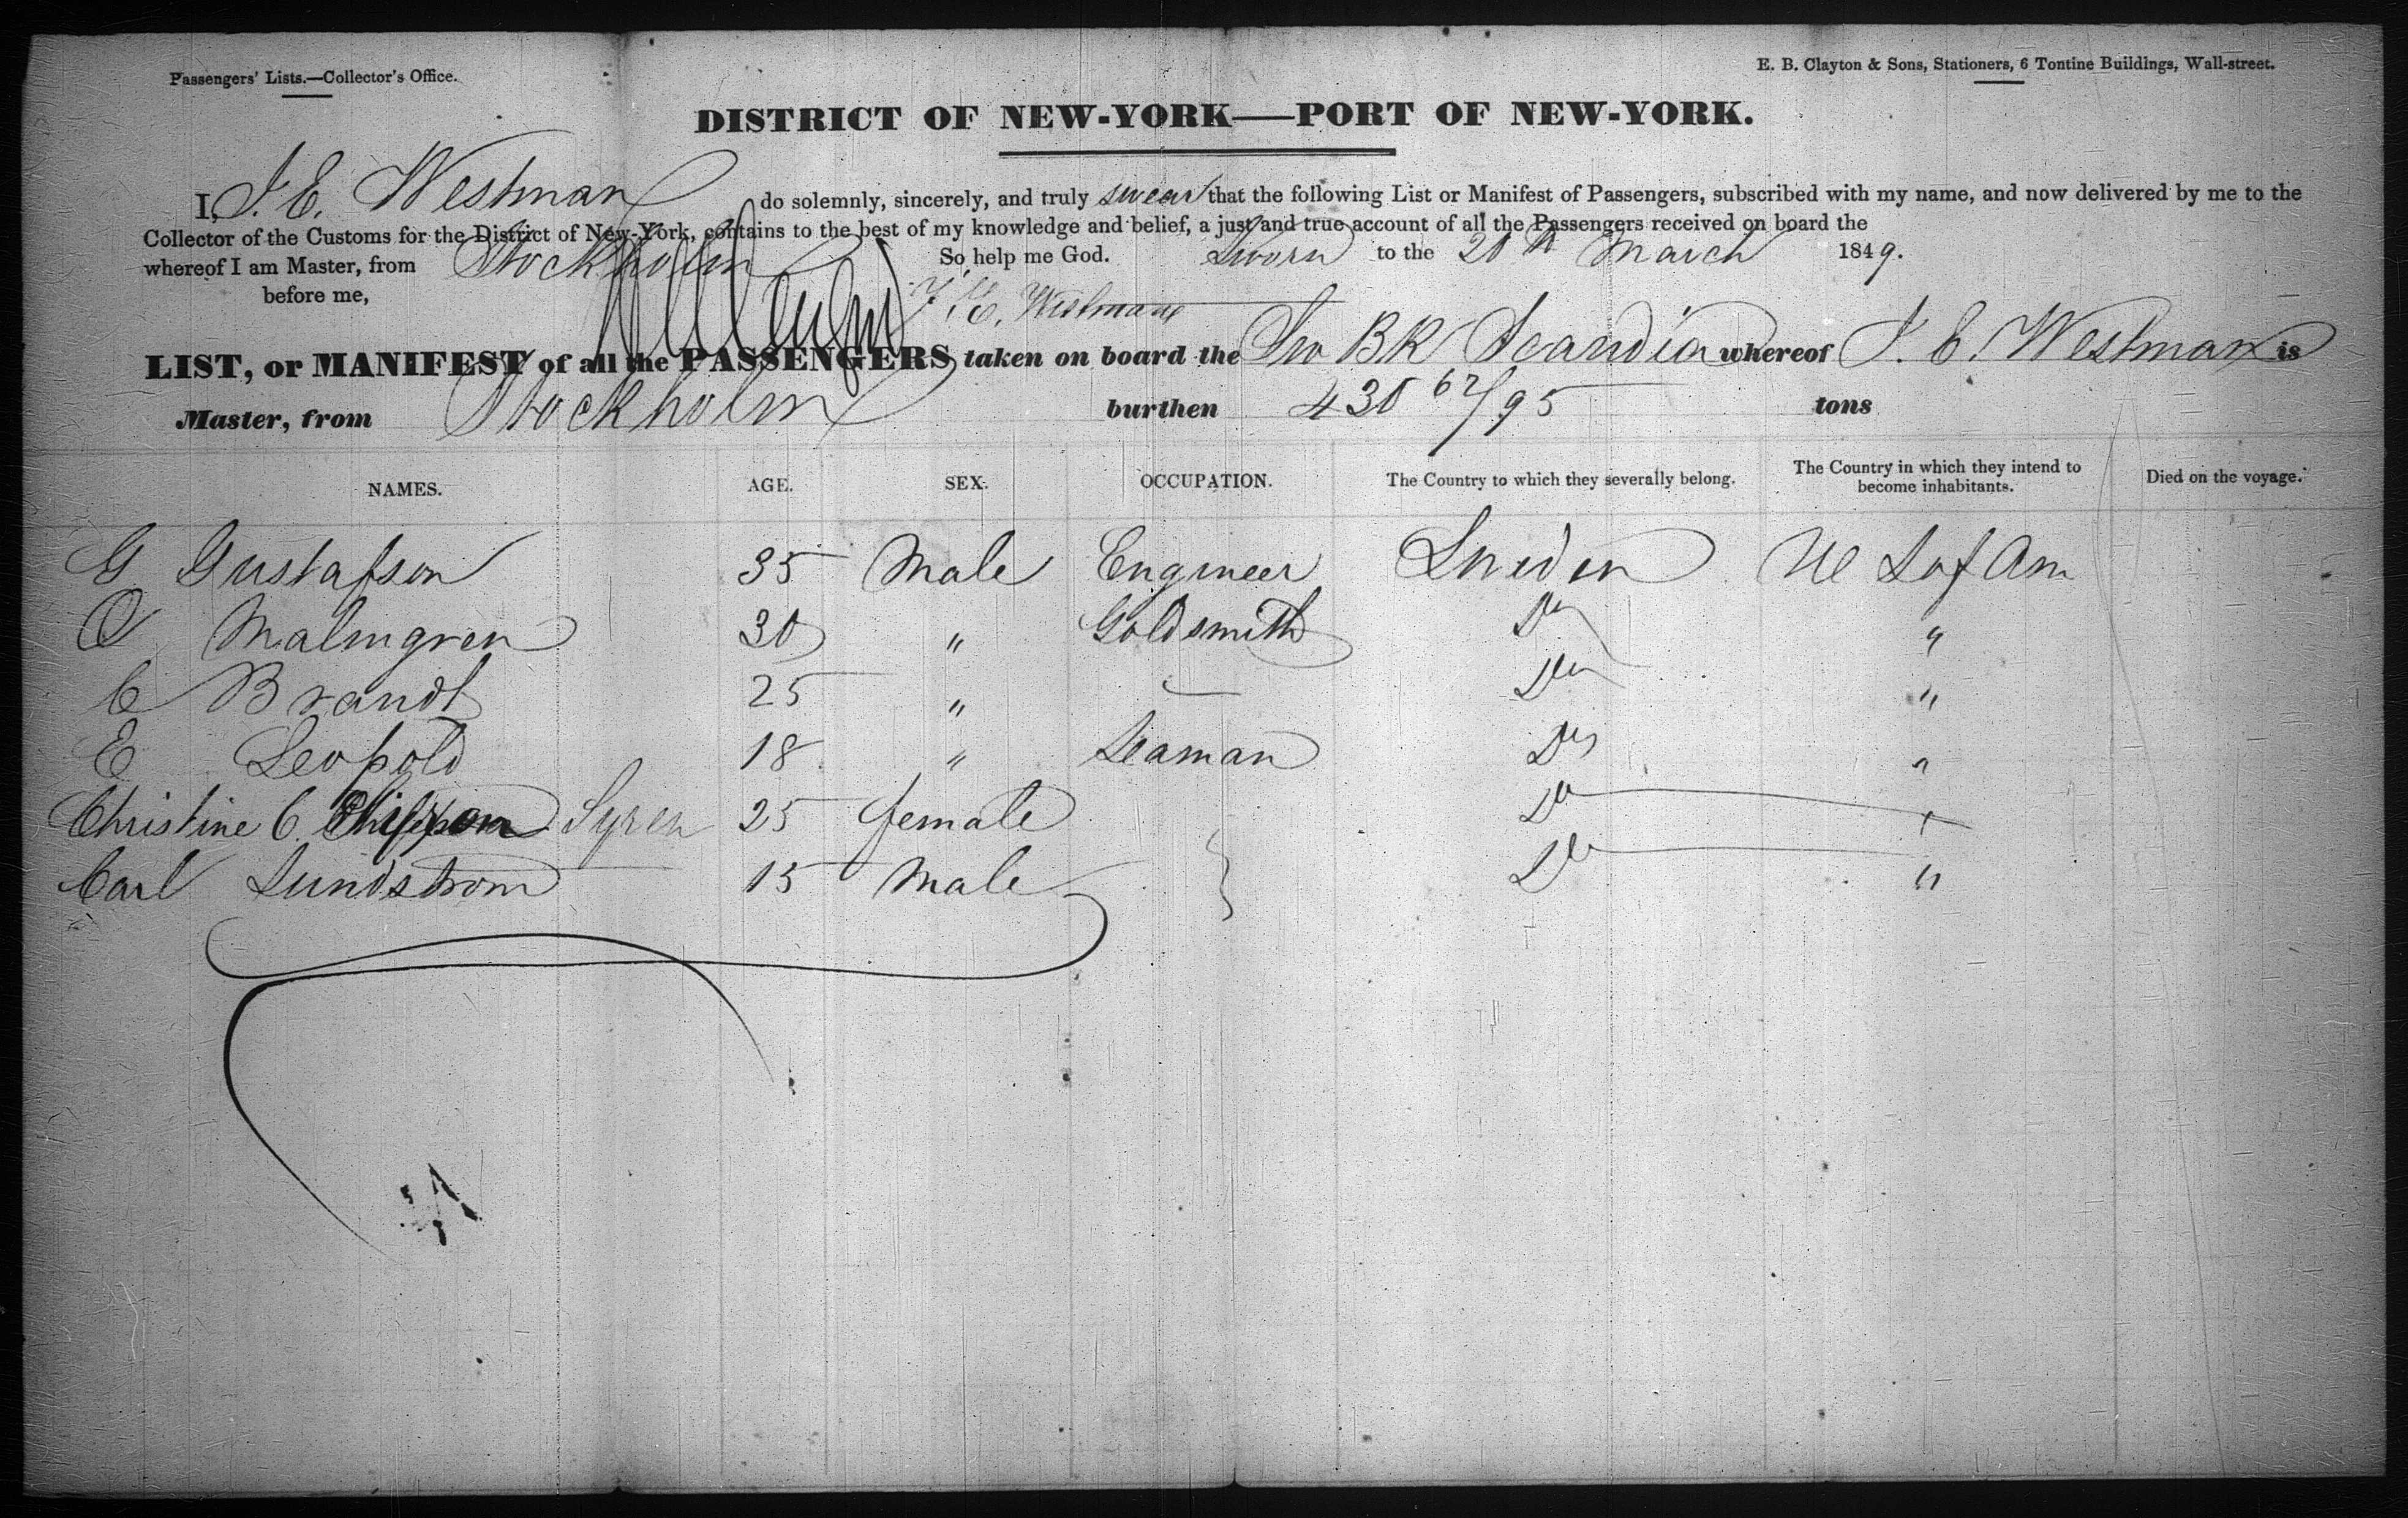 Passengers' Lists.—Collector's Office.
E. B. Clayton & Sons, Stationers, 6 Tontine Buildings, Wall-street.
DISTRICT OF NEW-YORK—PORT OF NEW-YORK.
I, J. E. Westman do solemnly, sincerely, and truly swear that the following List or Manifest of Passengers, subscribed with my name, and now delivered by me to the
Collector of the Customs for the District of New-York, contains to the best of my knowledge and belief, a just and true account of all the Passengers received on board the
whereof I am Master, from Stockholm So help me God. Sworn to the 20th March 1849.
before me,
J. E. Westman
LIST, or MANIFEST of all the PASSENGERS taken on board the Sw BK Scandia whereof J. E. Westman is
Master, from Stockholm burthen 430 67/95 tons
NAMES. AGE. SEX. OCCUPATION. The Country to which they severally belong. The Country in which they intend to become inhabitants. Died on the voyage.
G Gustafson 35 Male Engineer Sweden U S of Am
O Malmgren 30 " Goldsmith Do "
C Brandt 25 " — Do "
E Leopold 18 " Seaman Do "
Christine C. Syren 25 female Do "
Carl Lundstrom 15 Male Do "